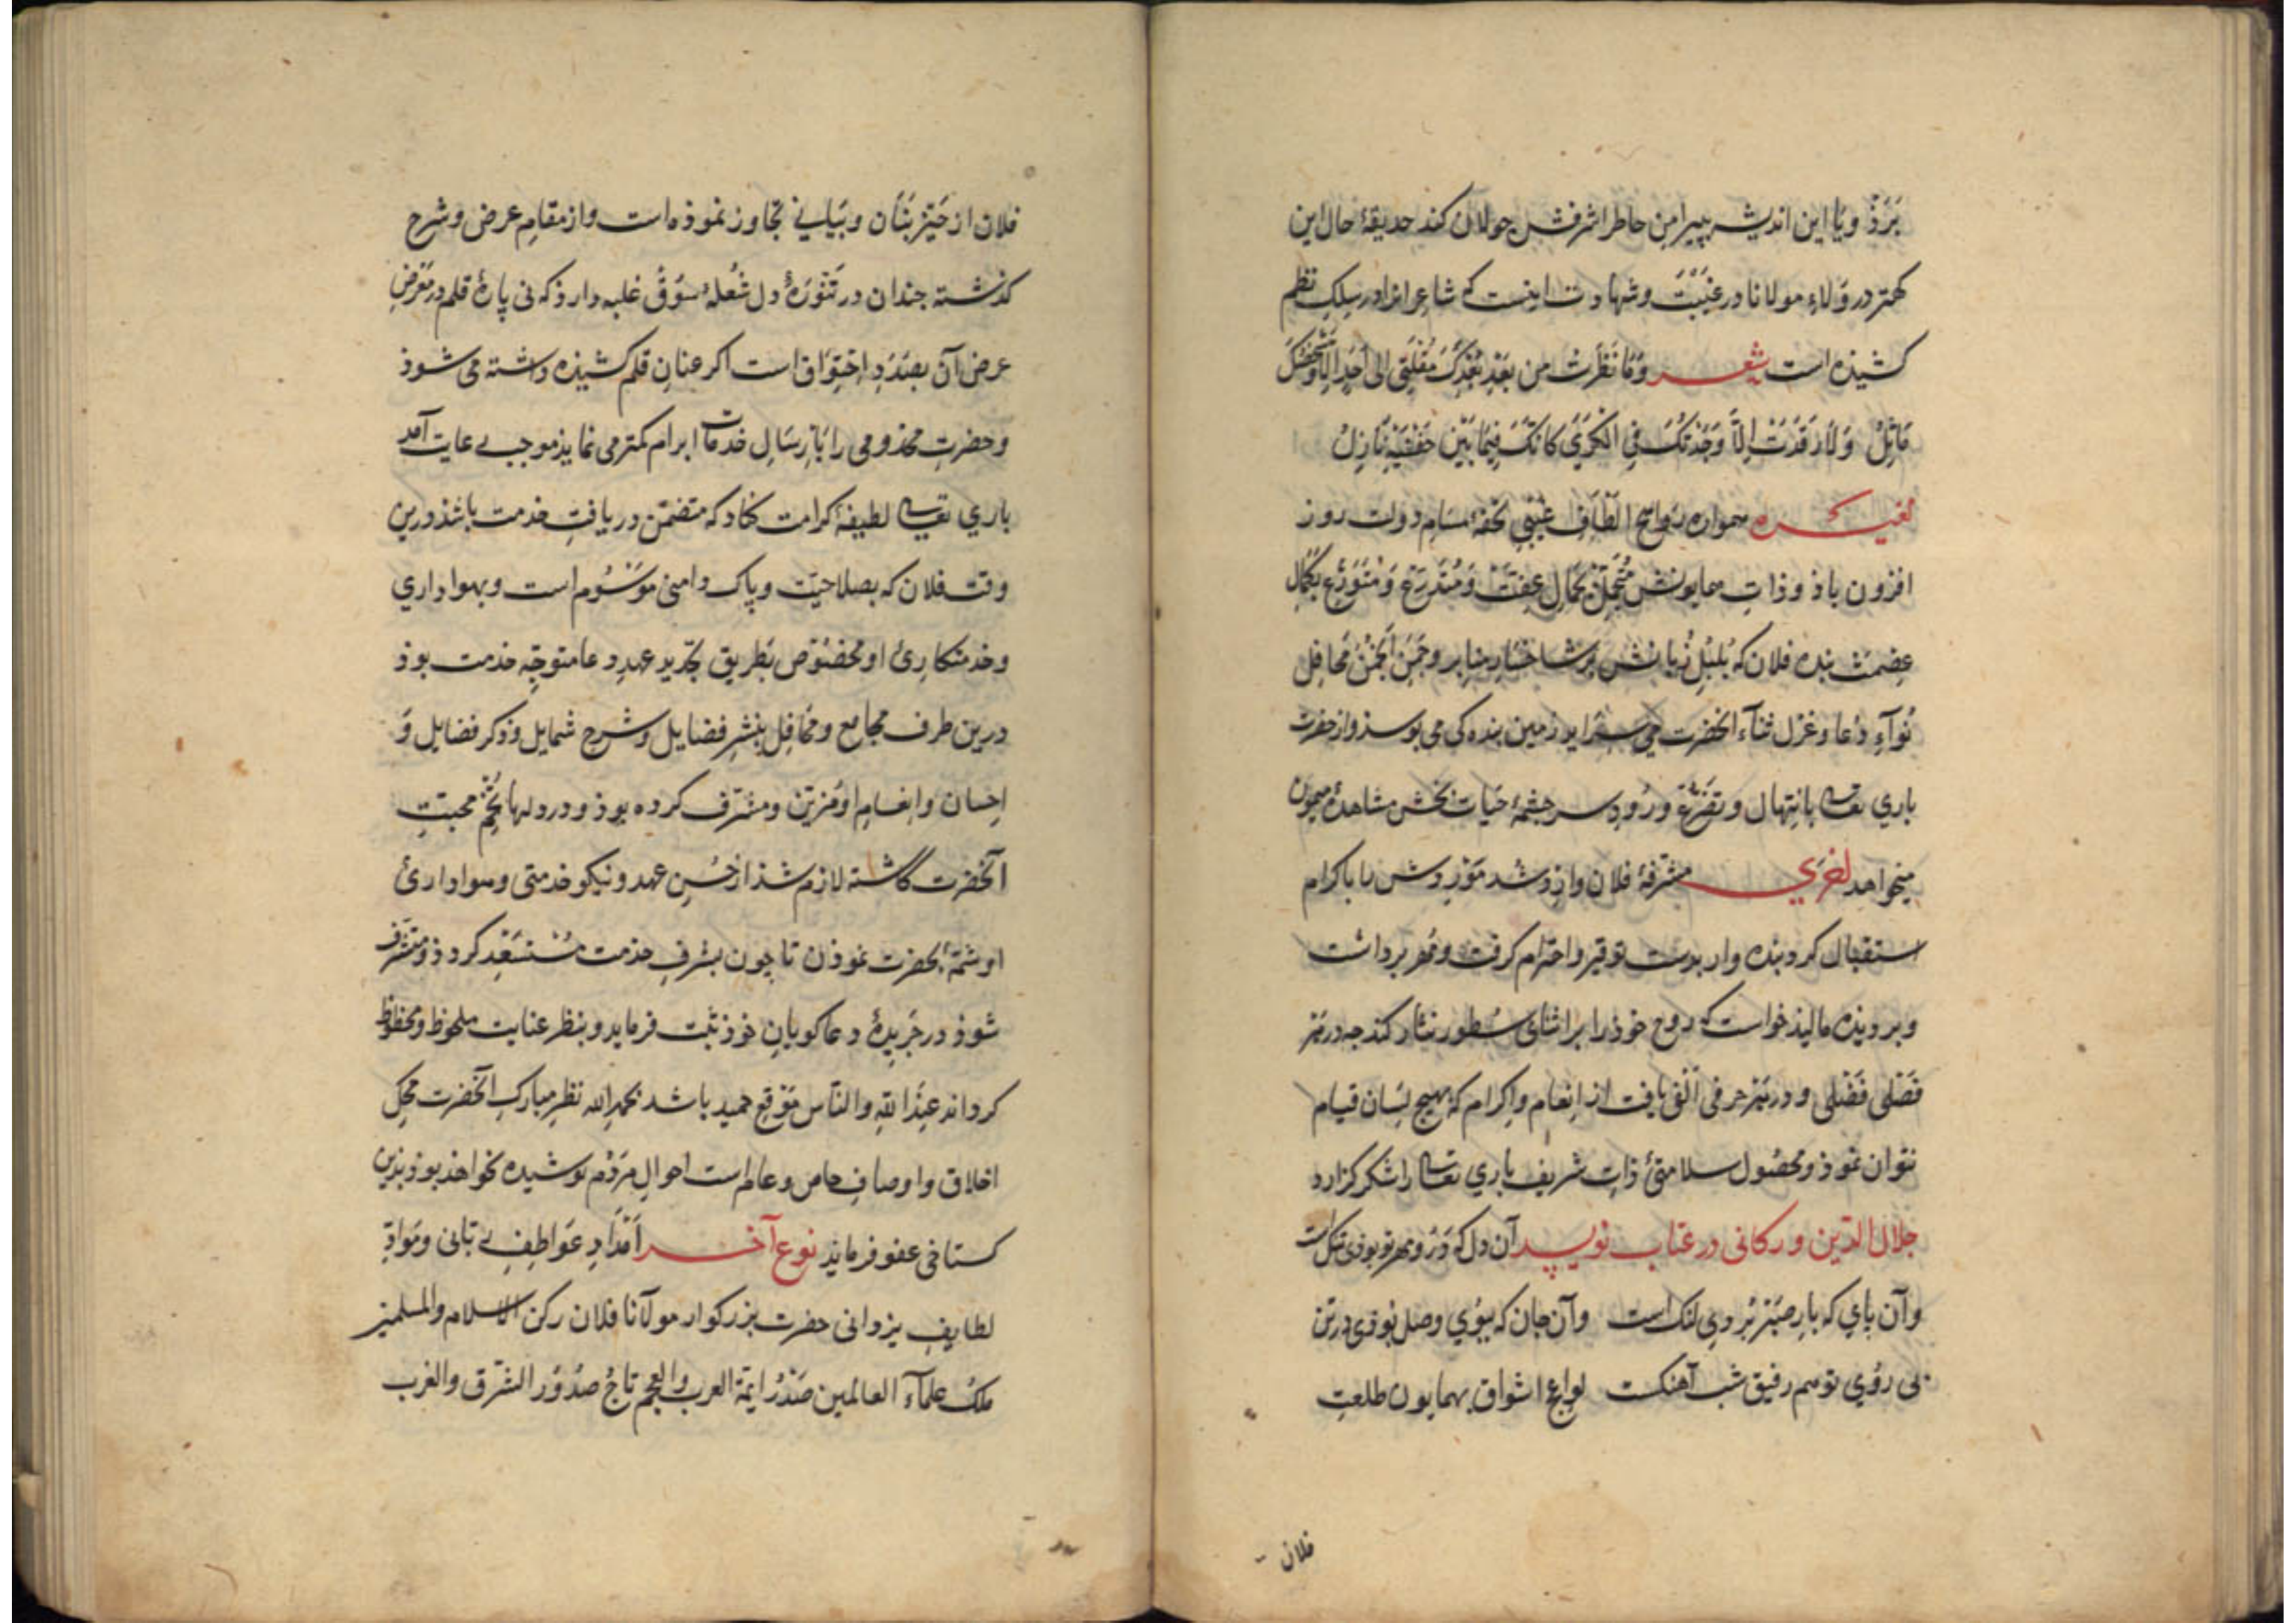 بَرَذ ویا این اندیشه پیرامن خاطر اشرفش جولان کند حدیقهٔ حال این
کهتر در وَلاءِ مولانا در غَیبَت و شهادت اینست که شاعر انرا در سِلکِ نظم
کشیده است شعر وَمَا نَظَرَتْ من بَعْدِ بُعْدِکَ مُقْلَتِی الی اَحَدٍ اِلّا وَشَخْصُکَ
مَاثِلُ وَلَا رَقَدَتْ اِلَّا وَجَدْتُکَ فِی الکَرَی کَانَّکَ فِیمَا بَیْنَ جَفْنَیَّ نَازِلُ
لغیره همواره روایح الطافِ غیبی تحفهٔ مسامِ دولت روز
افزون باذ و ذاتِ همایونش مُتَجَمِّل بجَمالِ عِفّت و مُتَدَرِّع وَ مُتَوَرِّع بکمال
عِصْمَت بنده فلان که بُلبُلِ زبانش بر شاخسار منابر و چَمَنِ انجُمَنِ مَحَافِل
نُوآءِ دُعا و غزل ثناء انحضرت می سراید زمین بندگی می بوسذ و از حضرت
باری تعالی بابتِهال و تضرّع وُرُودِ سرچشمهٔ حیات بخش مشاهدهٔ میمون
میخواهد لغیری مشرّفهٔ فلان وارذ شد مَوْرِدش را باکرام
استقبال کرد بنده وار بدست توقیر و احترام کرفت و مُهر برداشت
و بر دیذه مالیذ خواست که روح خوذ را بر اثنای سُطور نثار کند چه در هر
فَصْلی فَضْلی و در هر حرفی اَلفی یافت از اِنعام و اِکرام که بهیچ لِسان قیام
نتوان نموذ و محصول سلامتیٔ ذات شریف باری تعالی را شکر کزارد
جلال الدّین ورکانی در عتاب نویسد آن دل که دَرُو مهر تو بوذی تنک است
وآن پای که بارِ صَبْر بُردی لنک است وآن جان که ببُویِ وصل بوذی در تن
بی رُویِ تو هم رفیق شب آهنکست لواعج اشواق بهمایون طلعتِ
فلان
فلان از حَیّزِ بَنَان و بَیَان تجاوز نموذه است و از مقامِ عرض و شرح
کذشته چندان در تنورهٔ دل شُعلهٔ شوْق غلبه دارذ که نی پارهٔ قلم در مَعْرَضِ
عرض آن بصَدَدِ اِحْتِرَاق است اکر عنانِ قلم کشیذه داشته می شوذ
وحضرتِ مخذومی را بَاِرْسَالِ خدمات ابرام کمتر می نمایذ موجب رعایت آمد
باری تعالی لطیفهٔ کرامت کناد که متضمّن دریافتِ خدمت باشذ درین
وقت فلان که بصلاحیّت و پاک دامنی مَوْسُوم است وبهواداری
وخدمتکاریٔ او مخصُوص بطریق تجدید عهدِ دعا متوجّهِ خدمت بوذ
درین طرف مجامع و مَحَافِل بنشرِ فضایل و شرح شمایل و ذکر فضایل وَ
اِحسان و اِنعامِ او مُزیّن و مشرّف کرده بوذ و در دلها تُخْمِ محبّتِ
آنحضرت کاشته لازم شذ از حُسنِ عهد و نیکو خدمتی و هواداریٔ
او شمّهٔ بحضرت نموذن تا چون بشرفِ خدمت مُسْتَسْعِد کردذ و متشرف
شوذ در جَریدهٔ دعا کویانِ خوذ ثبت فرماید و بنظر عنایت ملحوظ و محظوظ
کرداند عِنْدَ اللّٰهِ والنّاس مَوْقِع حمید باشد بحمد الله نظرِ مبارکِ آنحضرت مَحَکِّ
اخلاق و اوصافِ خاص و عام است احوالِ مَرْدُم پوشیده نخواهذ بوذ بذین
کستاخی عفو فرمایذ نوع آخر اَمْدَادِ عَوَاطِفِ ربّانی و مَوَادِّ
لطایفِ یزدانی حضرت بزرکوار مولانا فلان رکن الاسلام والمسلمین
مَلِکُ علمآءِ العالمین صَدْرُ ایمة العرب والعجم تاجُ صُدُورِ الشّرق والغرب